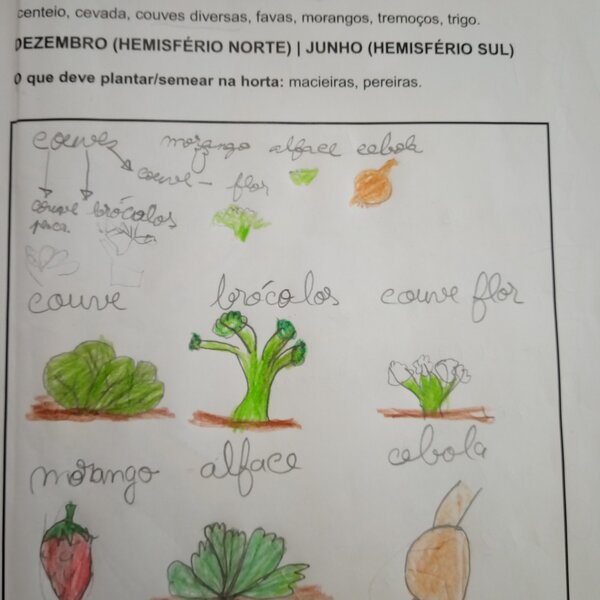 centeio, cevada, couves diversas, favas, morangos, tremoços, trigo.
DEZEMBRO (HEMISFÉRIO NORTE) | JUNHO (HEMISFÉRIO SUL)
O que deve plantar/semear na horta: macieiras, pereiras.
couves morango alface cebola
couve - flor
couve brócolos
couve brócolos couve flor
morango alface cebola